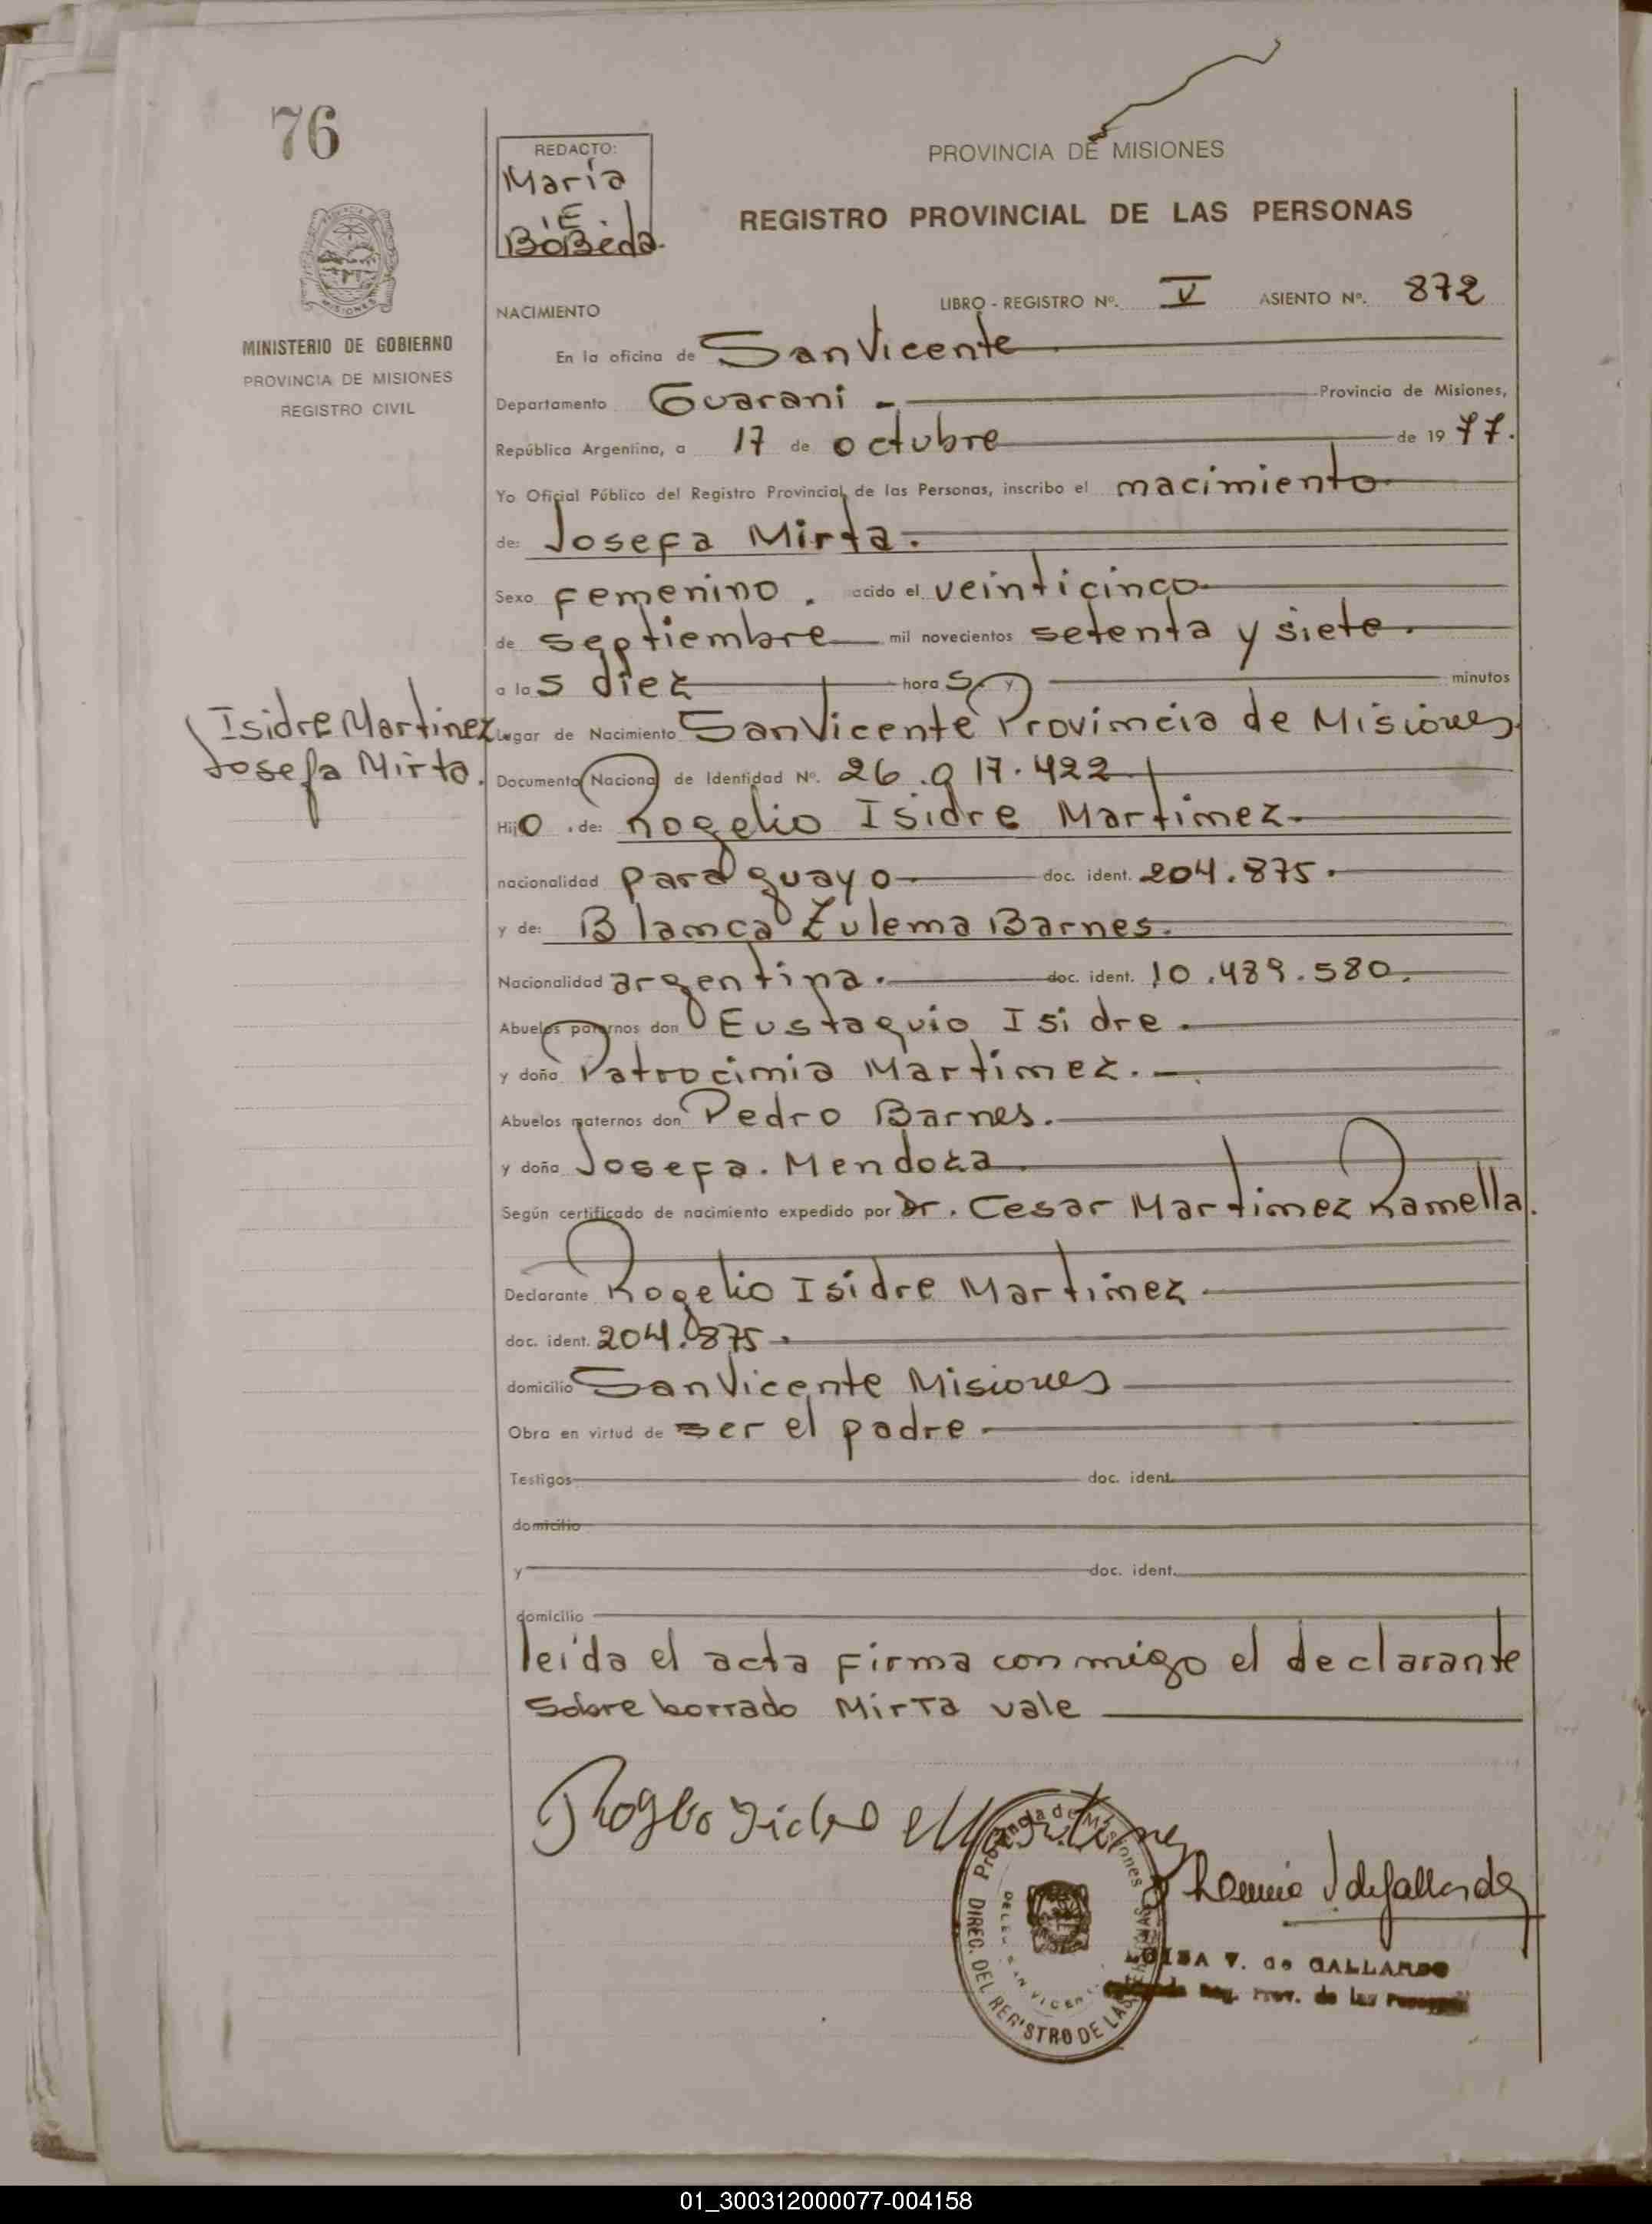 76
REDACTO:
María
E.
BoBeda.
PROVINCIA DE MISIONES
REGISTRO PROVINCIAL DE LAS PERSONAS
MINISTERIO DE GOBIERNO
PROVINCIA DE MISIONES
REGISTRO CIVIL
NACIMIENTO LIBRO - REGISTRO Nº. V ASIENTO Nº. 872
En la oficina de San Vicente
Departamento Guarani - Provincia de Misiones,
República Argentina, a 17 de octubre de 1977.
Yo Oficial Público del Registro Provincial de las Personas, inscribo el nacimiento
de: Josefa Mirta.
Sexo femenino. acido el veinticinco
de septiembre mil novecientos setenta y siete.
a las diez horas y minutos
Isidre Martinez
Josefa Mirta.
Lugar de Nacimiento San Vicente Provincia de Misiones.
Documento Nacional de Identidad Nº. 26.017.422
Hijo de: Rogelio Isidre Martinez
nacionalidad paraguayo doc. ident. 204.875.
y de: Blanca Zulema Barnes.
Nacionalidad argentina. doc. ident. 10.489.580.
Abuelos paternos don Eustaquio Isidre.
y doña Patrocinia Martinez.
Abuelos maternos don Pedro Barnes.
y doña Josefa. Mendoza
Según certificado de nacimiento expedido por Dr. Cesar Martinez Ramella.
Declarante Rogelio Isidre Martinez
doc. ident. 204.875.
domicilio San Vicente Misiones
Obra en virtud de ser el padre
Testigos doc. ident.
domicilio
y doc. ident.
domicilio
leida el acta firma conmigo el declarante
sobre borrado Mirta vale
Rogelio Isidre Martinez
Provincia de Misiones
DIREC. DEL REGISTRO DE LAS PERSONAS
V. de GALLARDO
Reg. Prov. de las Personas
01_300312000077-004158